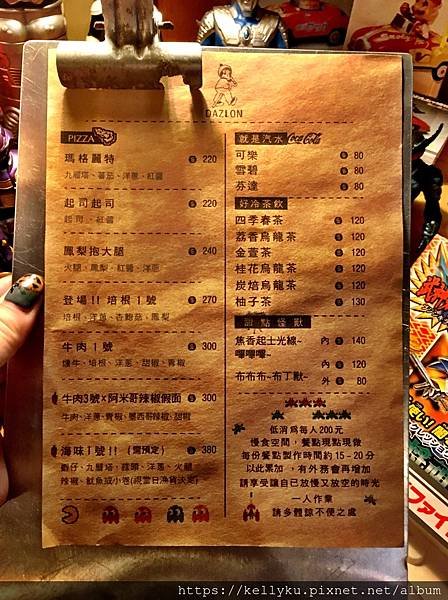 DAZLON
PIZZA
瑪格麗特 $ 220
九層塔、蕃茄、洋蔥、紅醬
起司起司 $ 220
起司、紅醬
鳳梨抱大腿 $ 240
火腿、鳳梨、紅醬、洋蔥
登場!! 培根1號 $ 270
培根、洋蔥、杏鮑菇、鳳梨
牛肉1號 $ 300
燻牛、培根、洋蔥、甜椒、青椒
牛肉3號x阿米哥辣椒假面 $ 300
牛肉、洋蔥、青椒、墨西哥辣椒、甜椒
海味1號!! (需預定) $ 380
蝦仔、九層塔、蘑頭、洋蔥、火腿
辣椒、魷魚或小卷(視當日漁貨決定)
就是汽水 Coca-Cola
可樂 $ 80
雪碧 $ 80
芬達 $ 80
好冷茶飲
四季春茶 $ 120
荔香烏龍茶 $ 120
金萱茶 $ 120
桂花烏龍茶 $ 120
炭焙烏龍茶 $ 120
柚子茶 $ 130
甜點怪獸
焦香起士光線~ 內 $ 140
嗶嗶嗶~ 內 $ 120
布布布~布丁獸~ 外 $ 80
低消為每人200元
慢食空間，餐點現點現做
每份餐點製作時間約15-20分
以此累加，有外務會再增加
請享受讓自己放慢又放空的時光
一人作業
請多體諒不便之處
ファイ
https://kellyku.pixnet.net/album